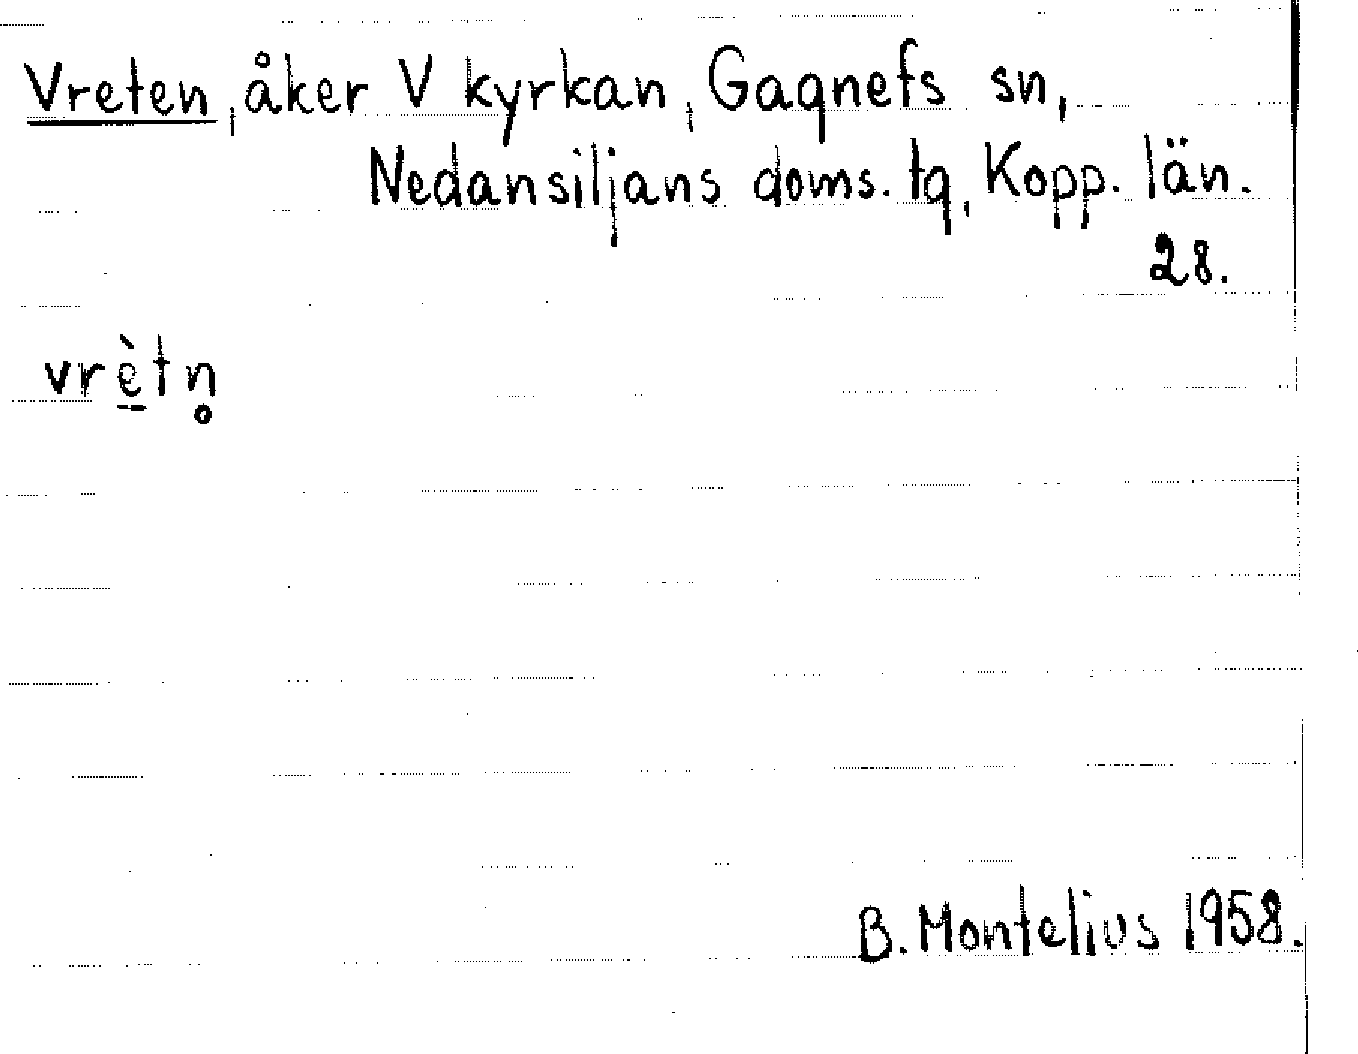 Vreten, åker V kyrkan, Gagnefs sn,
Nedansiljans doms. tg, Kopp. län.
28.
vrè̱tn̥
B. Montelius 1958.